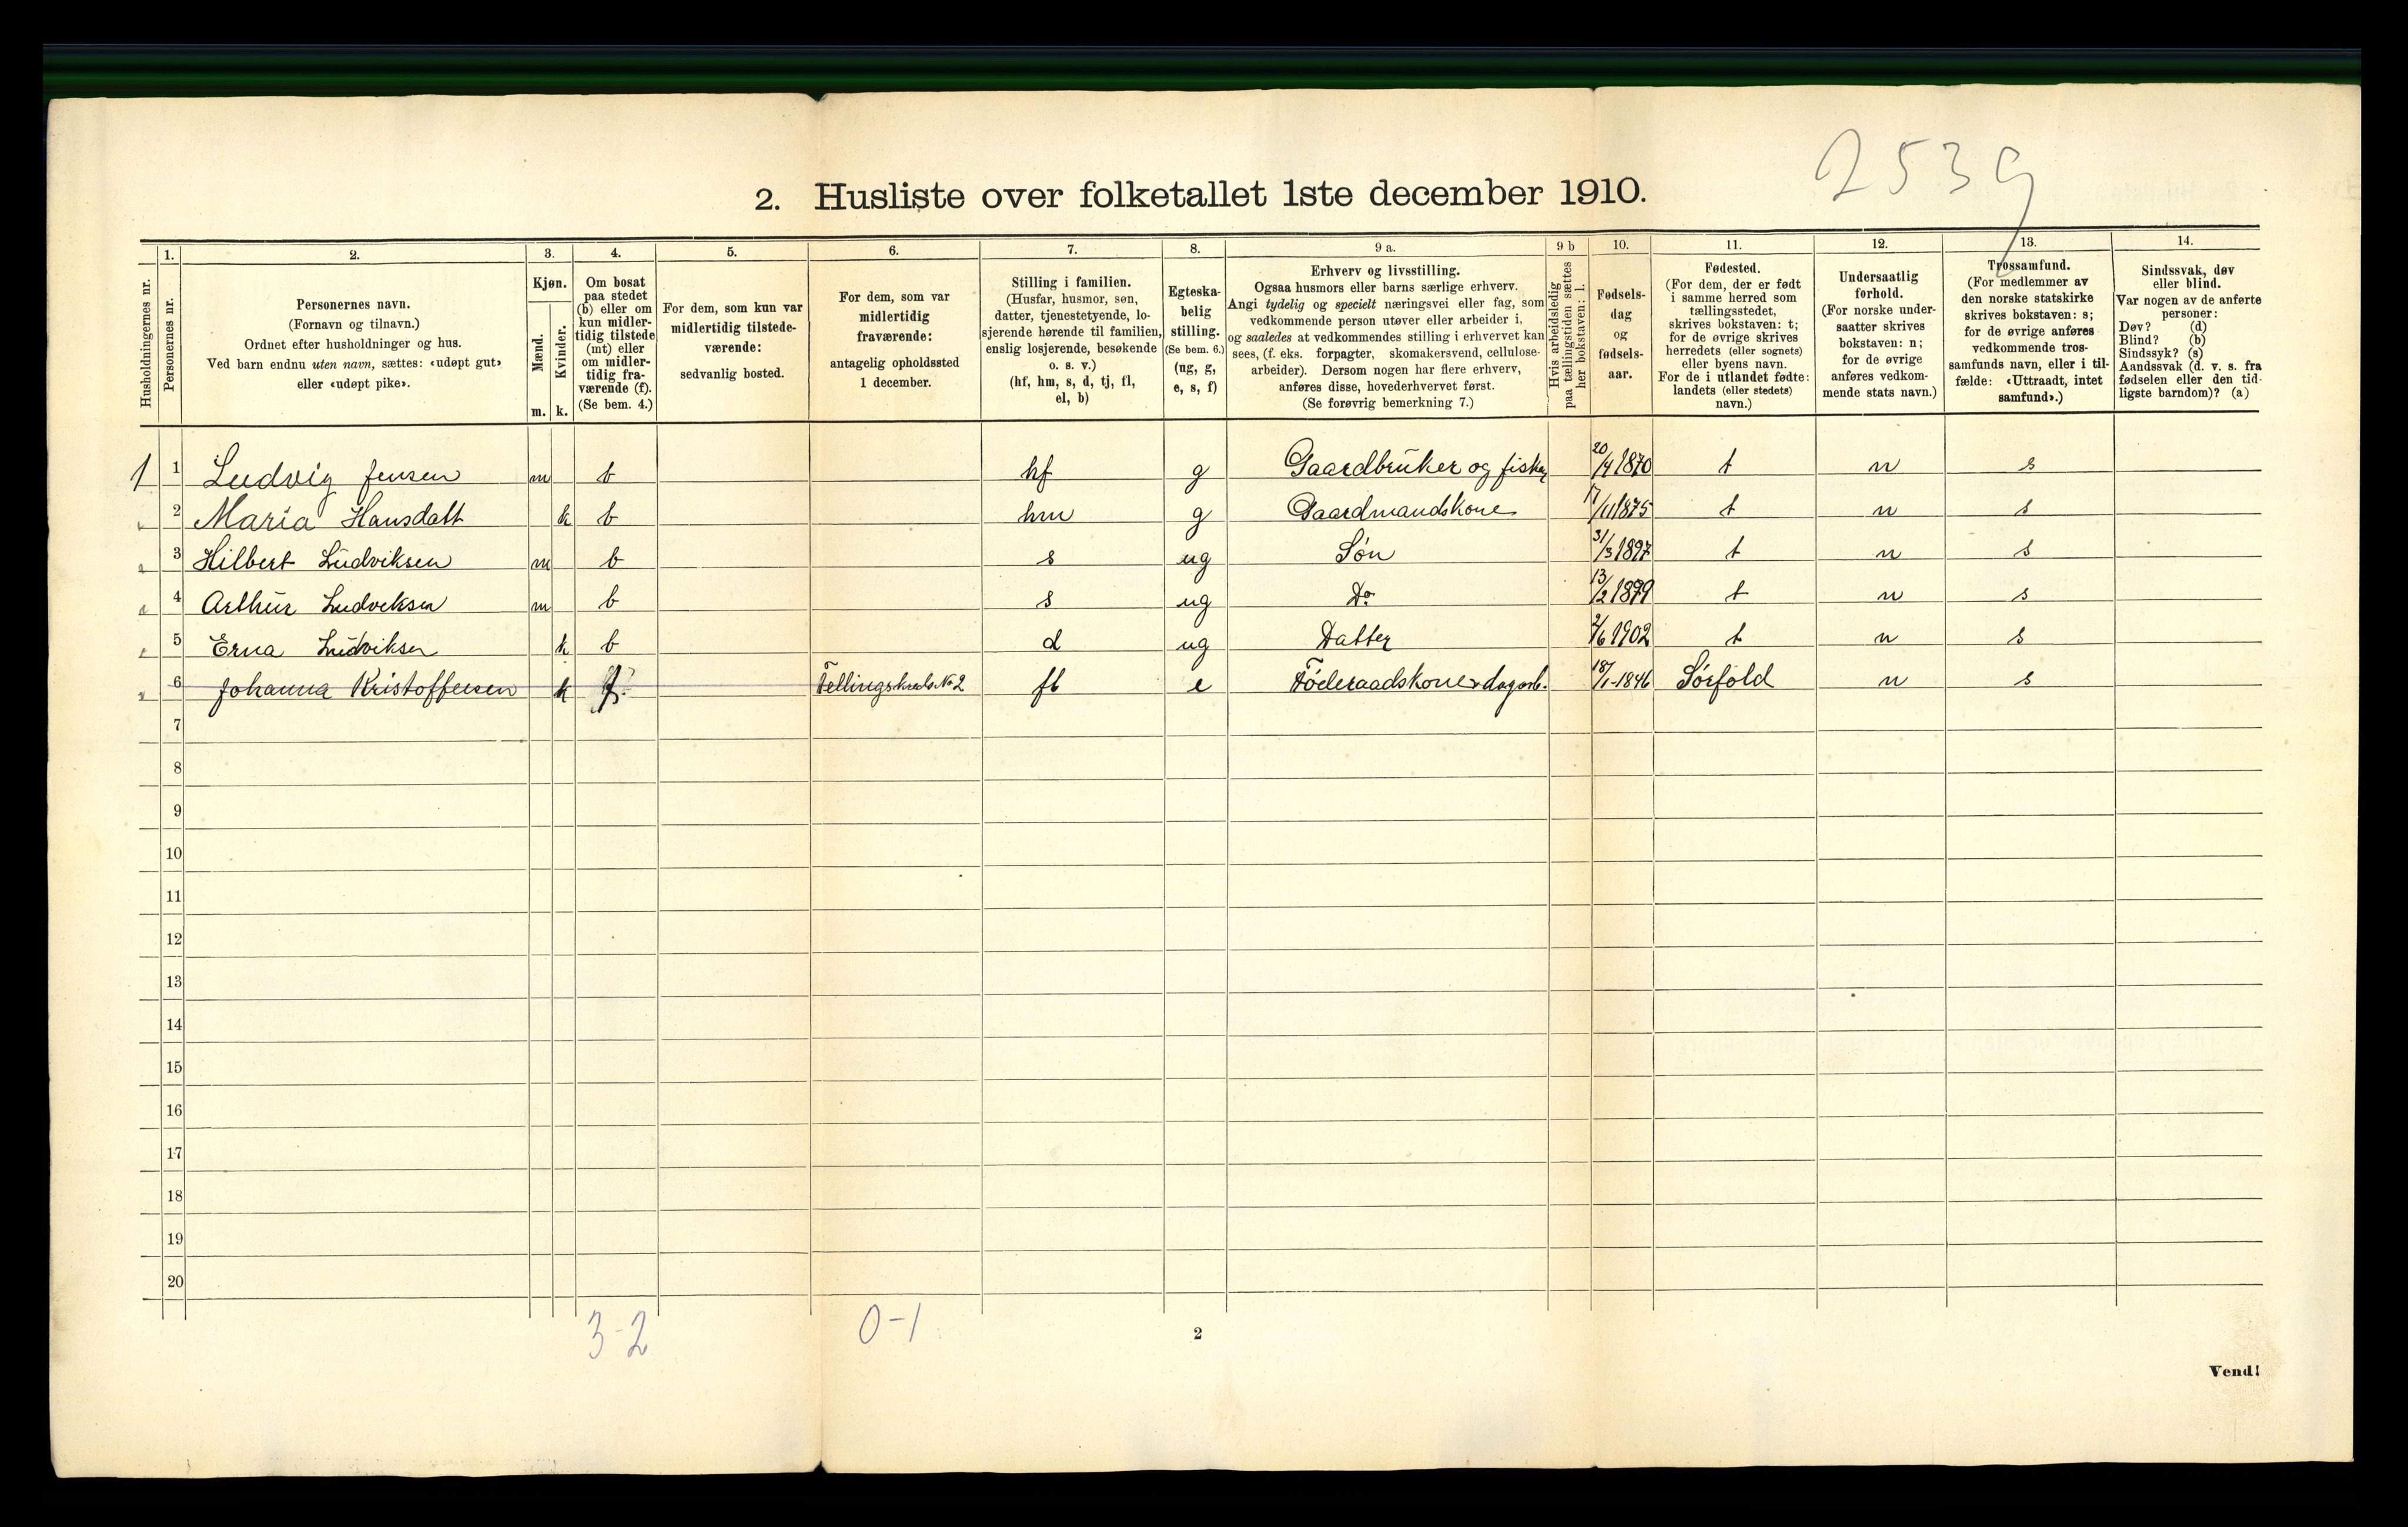 2539
2. Husliste over folketallet 1ste december 1910.
Husholdningernes nr.
1. Personernes nr.
2. Personernes navn.
(Fornavn og tilnavn.)
Ordnet efter husholdninger og hus.
Ved barn endnu uten navn, sættes: «udøpt gut»
eller «udøpt pike».
3. Kjøn.
Mænd. m.
Kvinder. k.
4. Om bosat
paa stedet
(b) eller om
kun midler-
tidig tilstede
(mt) eller
om midler-
tidig fra-
værende (f).
(Se bem. 4.)
5. For dem, som kun var
midlertidig tilstede-
værende:
sedvanlig bosted.
6. For dem, som var
midlertidig
fraværende:
antagelig opholdssted
1 december.
7. Stilling i familien.
(Husfar, husmor, søn,
datter, tjenestetyende, lo-
sjerende hørende til familien,
enslig losjerende, besøkende
o. s. v.)
(hf, hm, s, d, tj, fl,
el, b)
8. Egteska-
belig
stilling.
(Se bem. 6.)
(ug, g,
e, s, f)
9 a. Erhverv og livsstilling.
Ogsaa husmors eller barns særlige erhverv.
Angi tydelig og specielt næringsvei eller fag, som
vedkommende person utøver eller arbeider i,
og saaledes at vedkommendes stilling i erhvervet kan
sees, (f. eks. forpagter, skomakersvend, cellulose-
arbeider). Dersom nogen har flere erhverv,
anføres disse, hovederhvervet først.
(Se forøvrig bemerkning 7.)
9 b Hvis arbeidsledig
paa tællingstiden sættes
her bokstaven: l.
10. Fødsels-
dag
og
fødsels-
aar.
11. Fødested.
(For dem, der er født
i samme herred som
tællingsstedet,
skrives bokstaven: t;
for de øvrige skrives
herredets (eller sognets)
eller byens navn.
For de i utlandet fødte:
landets (eller stedets)
navn.)
12. Undersaatlig
forhold.
(For norske under-
saatter skrives
bokstaven: n;
for de øvrige
anføres vedkom-
mende stats navn.)
13. Trossamfund.
(For medlemmer av
den norske statskirke
skrives bokstaven: s;
for de øvrige anføres
vedkommende tros-
samfunds navn, eller i til-
fælde: «Uttraadt, intet
samfund».)
14. Sindssvak, døv
eller blind.
Var nogen av de anførte
personer:
Døv? (d)
Blind? (b)
Sindssyk? (s)
Aandssvak (d. v. s. fra
fødselen eller den tid-
ligste barndom)? (a)
1 1 Ludvig Jensen m b hf g Gaardbruker og fisker 20/4 1870 t n s
2 Maria Hansdatt k b hm g Gaardmandskone 17/11 1875 t n s
3 Hilbert Ludviksen m b s ug Søn 31/3 1897 t n s
4 Arthur Ludveksen m b s ug Do 13/2 1899 t n s
5 Erna Ludviksen k b d ug Datter 2/6 1902 t n s
6 Johanna Kristoffersen k f. Tellingskreds No 2 fl e Føderaadskone + dagarb. 18/1-1846 Sørfold n s
7
8
9
10
11
12
13
14
15
16
17
18
19
20
3-2 0-1
2
Vend!